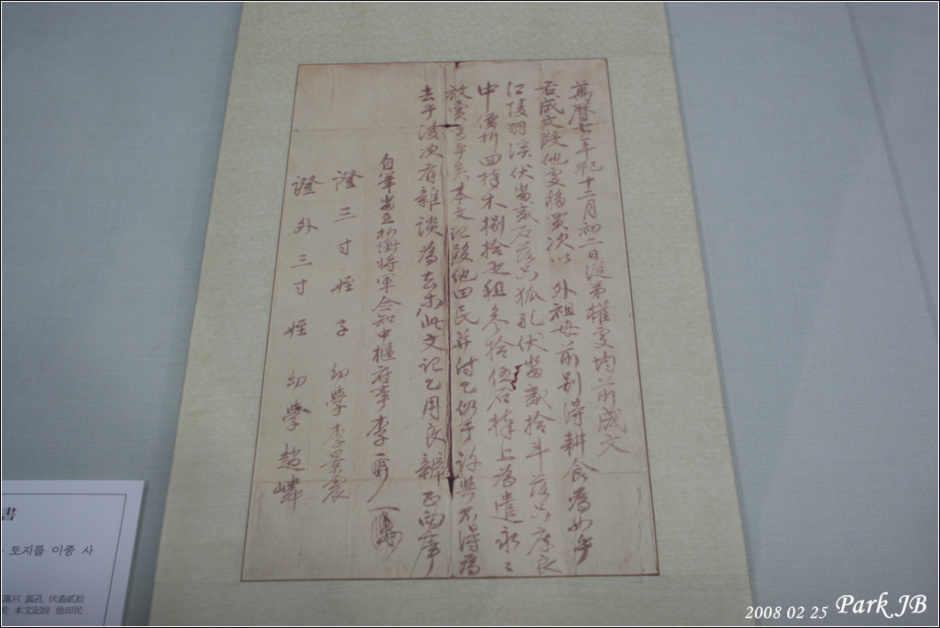 萬曆七年己卯十二月初二日從弟權處均前成文
右成文段他處移買次以外祖母前別得耕食爲如乎
江陵羽溪伏畓貳石落只狐孔伏畓貳拾斗落只庫良
中價折四升木捌拾疋租參拾伍石捧上爲遣永〻
放賣爲乎矣本文記段他田民幷付乙仍于許與不得爲
去乎後次有雜談爲去等此文記乙用良辨正向事
自筆畓主折衝將軍僉知中樞府事李
證三寸姪子幼學李景震
證外三寸姪幼學趙嶙
書
토지를 이종 사
落只 狐孔 伏畓貳拾
矣 本文記段 他田民
2008 02 25 Park JB